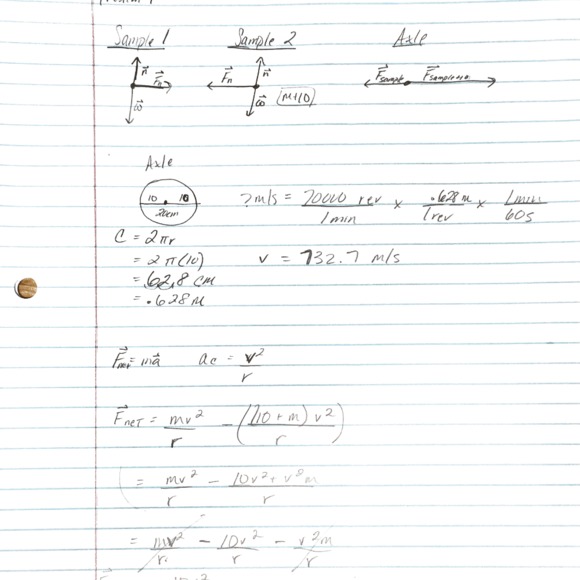 Problem 1
Sample 1 Sample 2 Axle
n Fn ω
Fn n ω M+10
Fsample Fsample+10
Axle
10 10
20cm
?m/s = 70000 rev / 1 min × .628 m / 1 rev × 1 min / 60s
C = 2πr
= 2π(10) v = 732.7 m/s
= 62.8 cm
= .628 m
Fnet = ma ac = v² / r
Fnet = mv² / r - ((10 + m) v² / r)
= mv² / r - 10v² + v²m / r
= mv² / r - 10v² / r - v²m / r